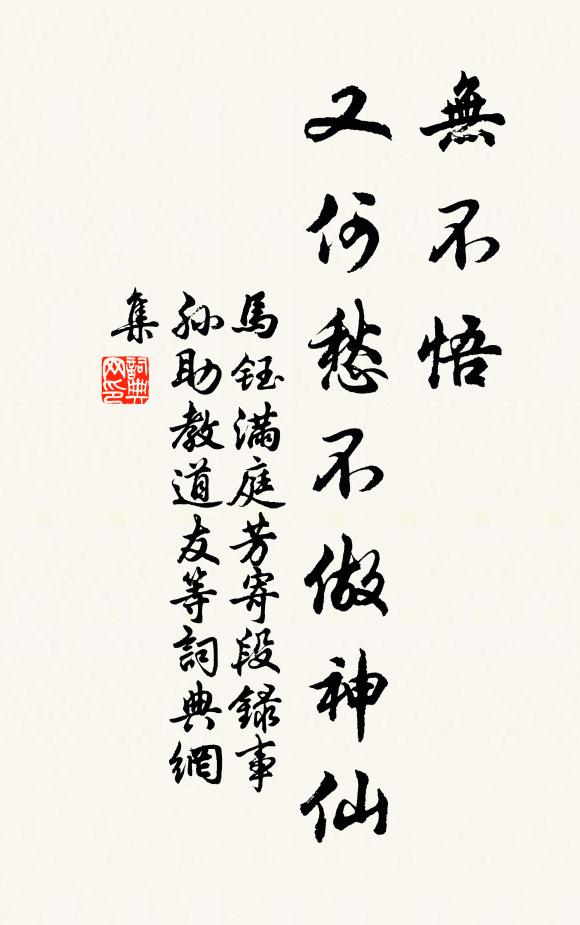 無不悟
又何愁不做神仙
馬鈺滿庭芳寄段録事
孙助教道友等詞典網
集
詞典
网印